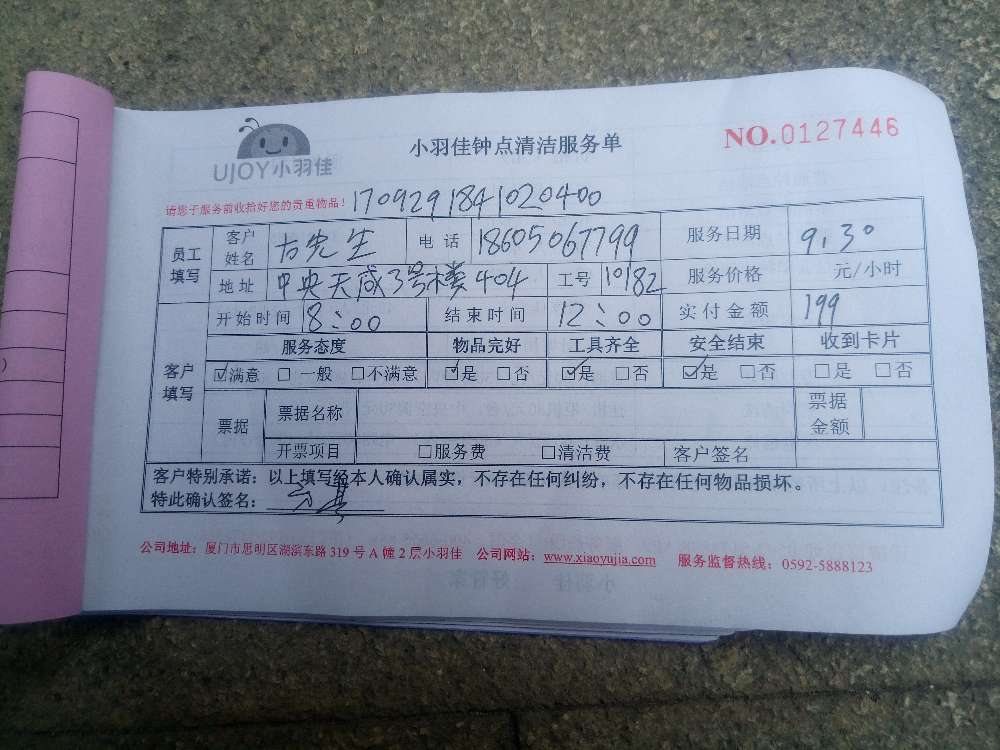 小羽佳钟点清洁服务单
NO.0127446
UJOY小羽佳
请您于服务前收拾好您的贵重物品! 1709291841020400
员工填写 客户姓名 方先生 电话 18605067799 服务日期 9.30
地址 中央天成3号楼404 工号 10182 服务价格 元/小时
开始时间 8:00 结束时间 12:00 实付金额 199
客户填写 服务态度 物品完好 工具齐全 安全结束 收到卡片
☑满意 □一般 □不满意 ☑是 □否 ☑是 □否 ☑是 □否 □是 □否
票据 票据名称 票据金额
开票项目 □服务费 □清洁费 客户签名
客户特别承诺:以上填写经本人确认属实,不存在任何纠纷,不存在任何物品损坏。
特此确认签名:
公司地址:厦门市思明区湖滨东路 319 号 A 幢 2 层小羽佳 公司网站:www.xiaoyujia.com 服务监督热线:0592-5888123